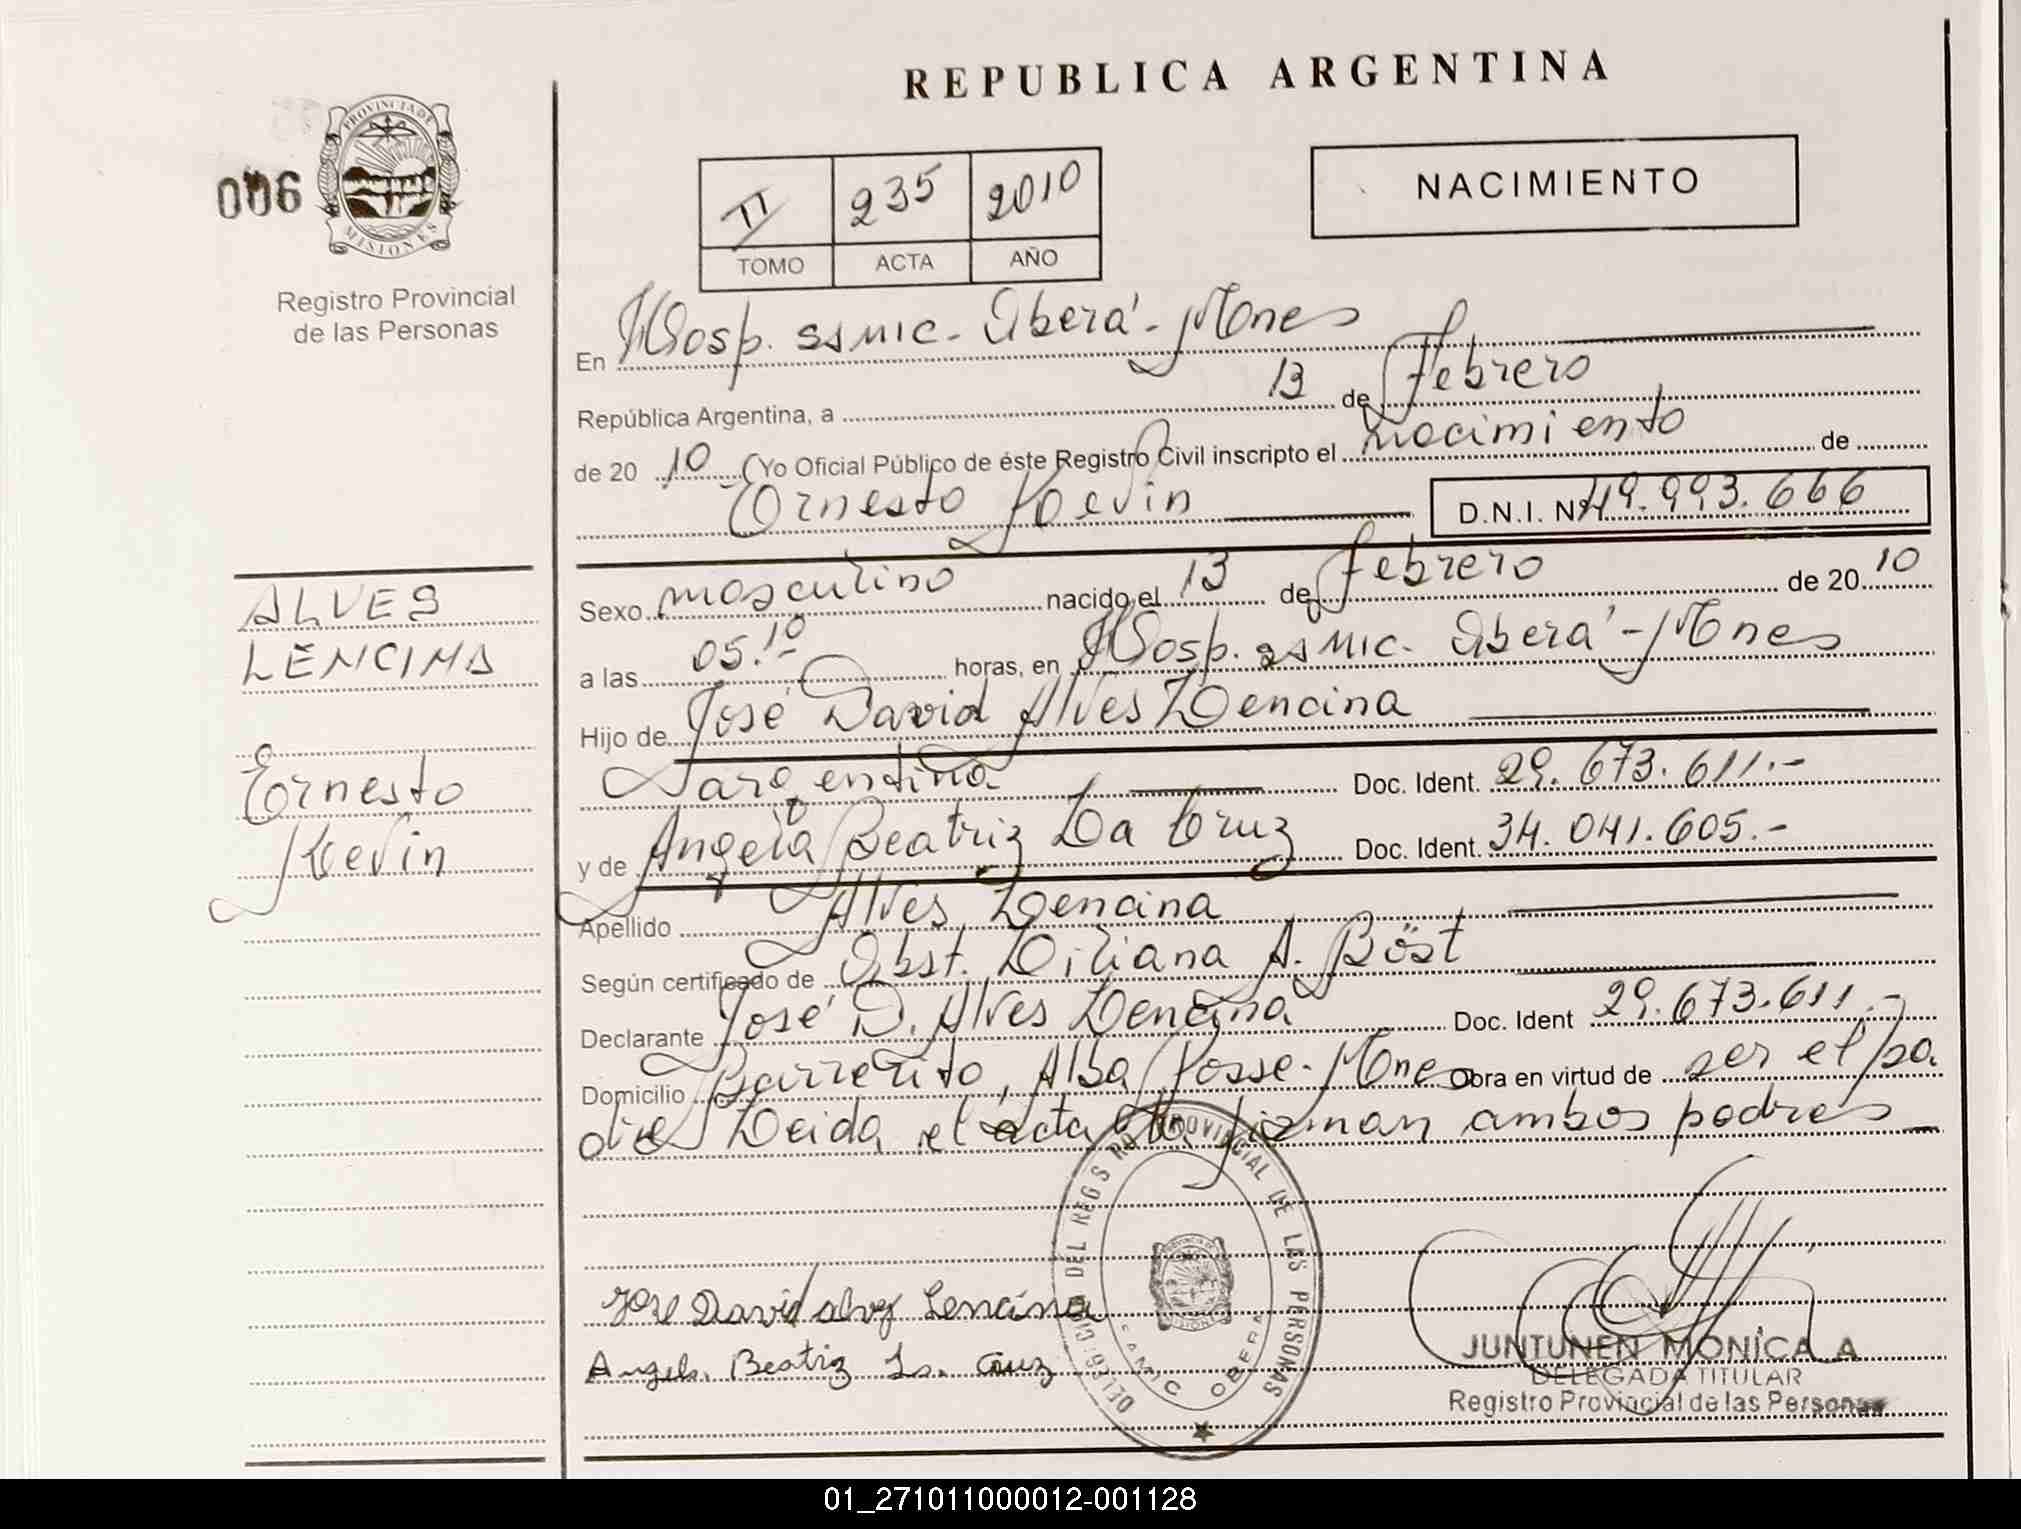 REPUBLICA ARGENTINA
PROVINCIA DE
MISIONES
006
Registro Provincial
de las Personas
II 235 2010
TOMO ACTA AÑO
NACIMIENTO
En Hosp. SAMIC - Oberá - Mnes
República Argentina, a 13 de Febrero
de 2010 Yo Oficial Público de éste Registro Civil inscripto el nacimiento de
Ernesto Kevin D.N.I. Nº 49.993.666
ALVES
LENCINA
Ernesto
Kevin
Sexo masculino nacido el 13 de febrero de 2010
a las 05.10 horas, en Hosp. SAMIC - Oberá - Mnes
Hijo de José David Alves Lencina
argentina Doc. Ident. 29.673.611.-
y de Angela Beatriz Da Cruz Doc. Ident. 34.041.605.-
Apellido Alves Lencina
Según certificado de Obst. Liliana A. Böst
Declarante José D. Alves Lencina Doc. Ident 29.673.611.-
Domicilio Barrerito, Alba Posse - Mnes Obra en virtud de ser el pa
dre Leida el acta firman ambos padres
DELEGACION DEL REGISTRO PROVINCIAL DE LAS PERSONAS
SAMIC OBERA
Jose David alvez Lencina
Angela Beatriz Da Cruz
JUNTUNEN MONICA A
DELEGADA TITULAR
Registro Provincial de las Personas
01_271011000012-001128